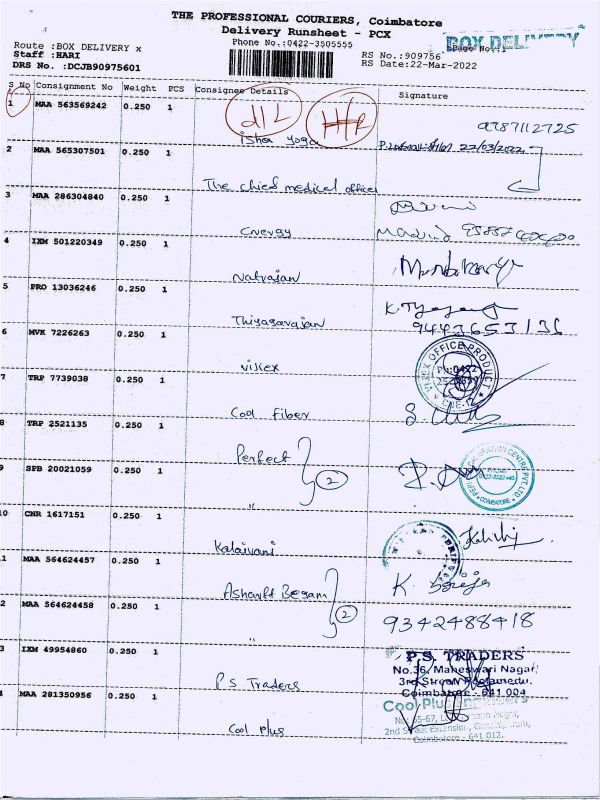 THE PROFESSIONAL COURIERS, Coimbatore
Delivery Runsheet - PCX
BOX DELIVERY
Route :BOX DELIVERY x
Phone No:0422-3505555
Page No.:1
Staff :HARI
RS No.:909756
DRS No. :DCJB90975601
RS Date:22-Mar-2022
S No Consignment No Weight PCS Consignee Details Signature
1 MAA 563569242 0.250 1
isha yoga 9787112725
2 MAA 565307501 0.250 1 22/03/2022
The chief medical officer
3 MAA 286304840 0.250 1
Energy
4 IXM 501220349 0.250 1
Natrajan
5 PRO 13036246 0.250 1
Thiyagarajan 9443653136
6 MVK 7226263 0.250 1
visiex OFFICE PRODUCT
7 TRP 7739038 0.250 1
Cool Fiber
8 TRP 2521135 0.250 1
Perfect 2
9 SPB 20021059 0.250 1
"
10 CNR 1617151 0.250 1
Kalaivani
1 MAA 564624457 0.250 1
Begam 2
2 MAA 564624458 0.250 1 9342488418
"
3 IXM 49954860 0.250 1 P.S. TRADERS
No.36, Maheswari Nagar,
P S Traders 3rd Street
Coimbatore - 641 004
MAA 281350956 0.250 1 Cool Plus
Cool plus 2nd Street Extension,
Coimbatore - 641 012.